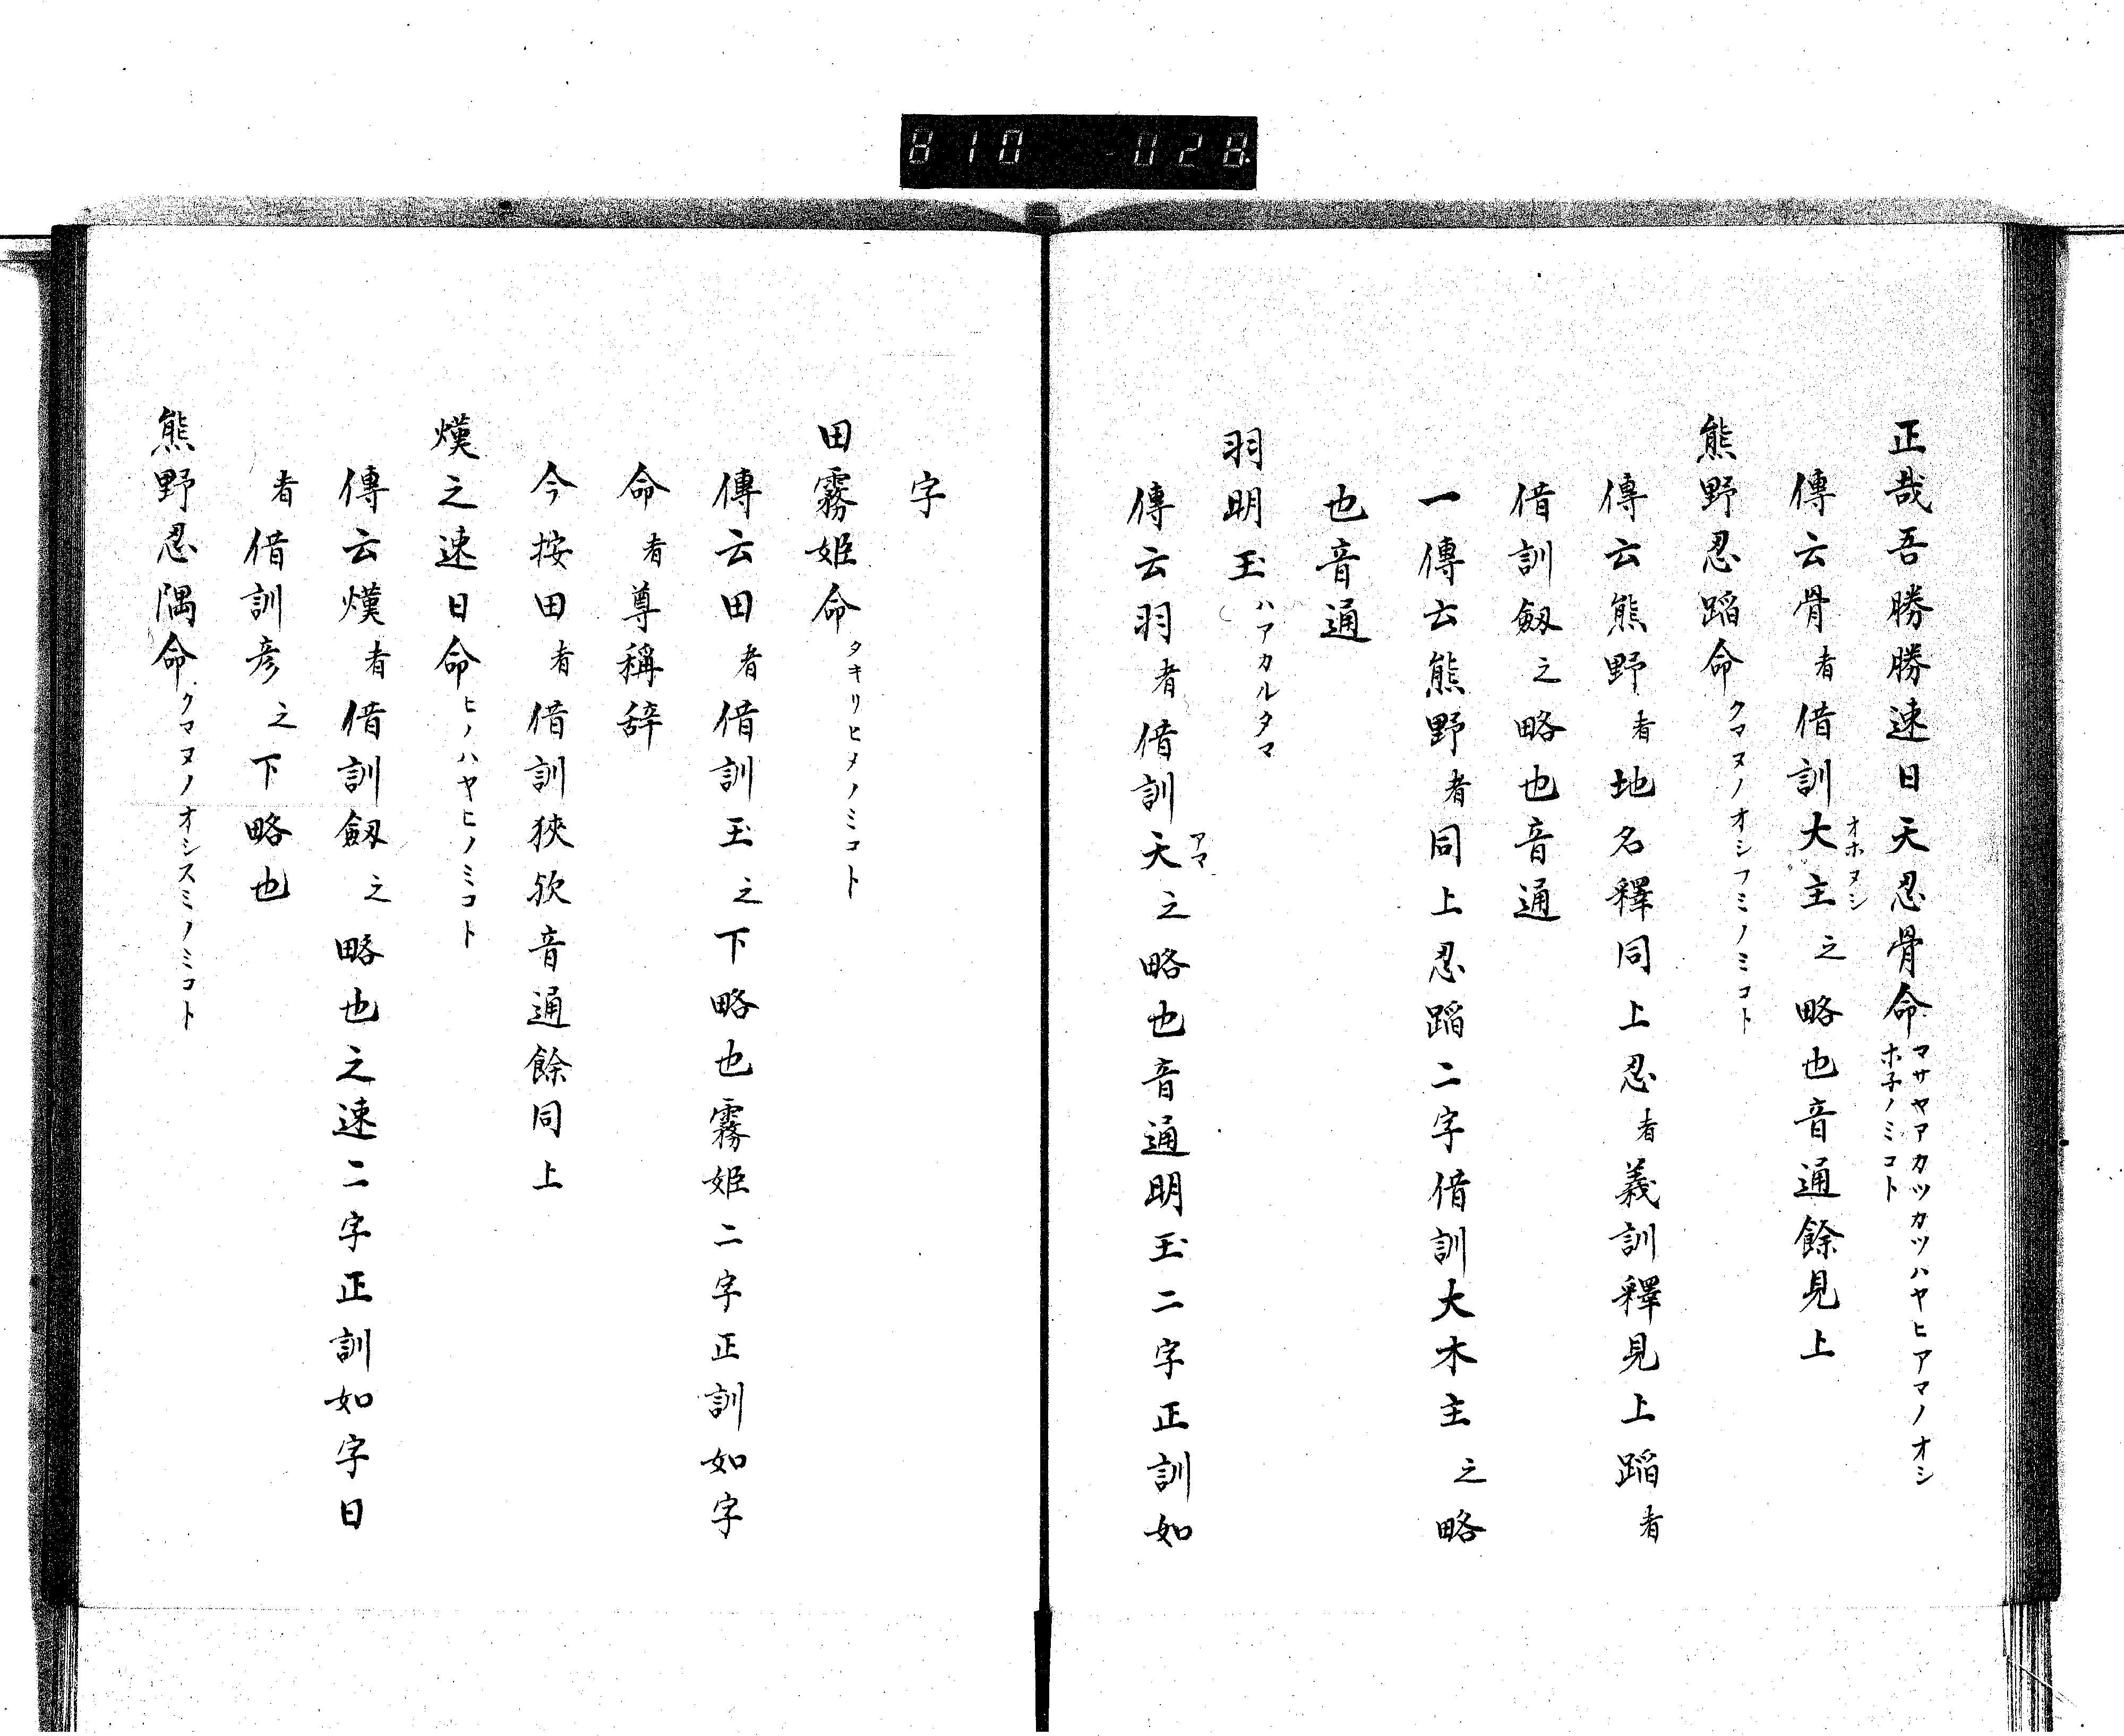 810 028
正哉吾勝勝速日天忍骨命 マサヤアカツカツハヤヒアマノオシホ子ノミコト
傳云骨者借訓大主オホヌシ之略也音通餘見上
熊野忍蹈命 クマヌノオシフミノミコト
傳云熊野者地名釋同上忍者義訓釋見上蹈者
借訓劔之略也音通
一傳云熊野者同上忍蹈二字借訓大木主之略
也音通
羽明玉 ハアカルタマ
傳云羽者借訓天アマ之略也音通明玉二字正訓如
字
田霧姫命 タキリヒメノミコト
傳云田者借訓玉之下略也霧姫二字正訓如字
命者尊稱辞
今按田者借訓狹欤音通餘同上
熯之速日命 ヒノハヤヒノミコト
傳云熯者借訓劔之略也之速二字正訓如字日
者借訓彦之下略也
熊野忍隅命 クマヌノオシスミノミコト